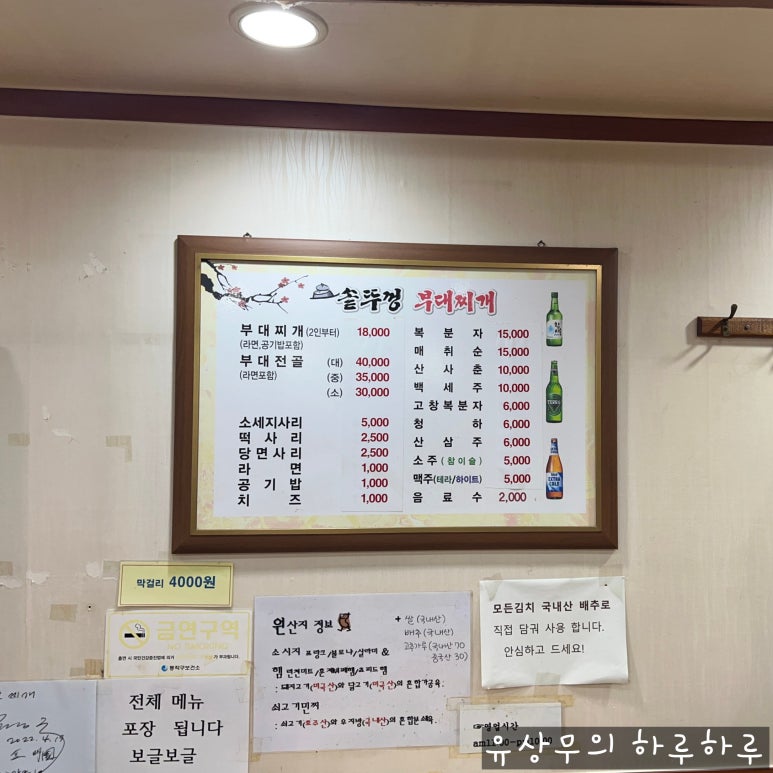 솥뚜껑 부대찌개
부대찌개 (2인부터) 18,000
(라면,공기밥포함)
부대전골 (대) 40,000
(라면포함) (중) 35,000
(소) 30,000
소세지사리 5,000
떡사리 2,500
당면사리 2,500
라면 1,000
공기밥 1,000
치즈 1,000
복분자 15,000
매취순 15,000
산사춘 10,000
백세주 10,000
고창복분자 6,000
청하 6,000
산삼주 6,000
소주 (참이슬) 5,000
맥주(테라/하이트) 5,000
음료수 2,000
막걸리 4000원
금연구역
NO SMOKING
동작구보건소
전체 메뉴
포장 됩니다
보글보글
2022.4.13
원산지 정보
+ 쌀 (국내산)
배추 (국내산)
고추가루 (국내산 70
중국산 30)
소시지 프랑크/볼로나/살라미 &
햄 런천미트/
: 돼지고기(미국산)와 닭고기(미국산)의 혼합가공육.
쇠고기민찌
: 쇠고기(호주산)와 우지방(국내산)의 혼합분쇄육.
모든김치 국내산 배추로
직접 담궈 사용 합니다.
안심하고 드세요!
영업시간
유상무의 하루하루